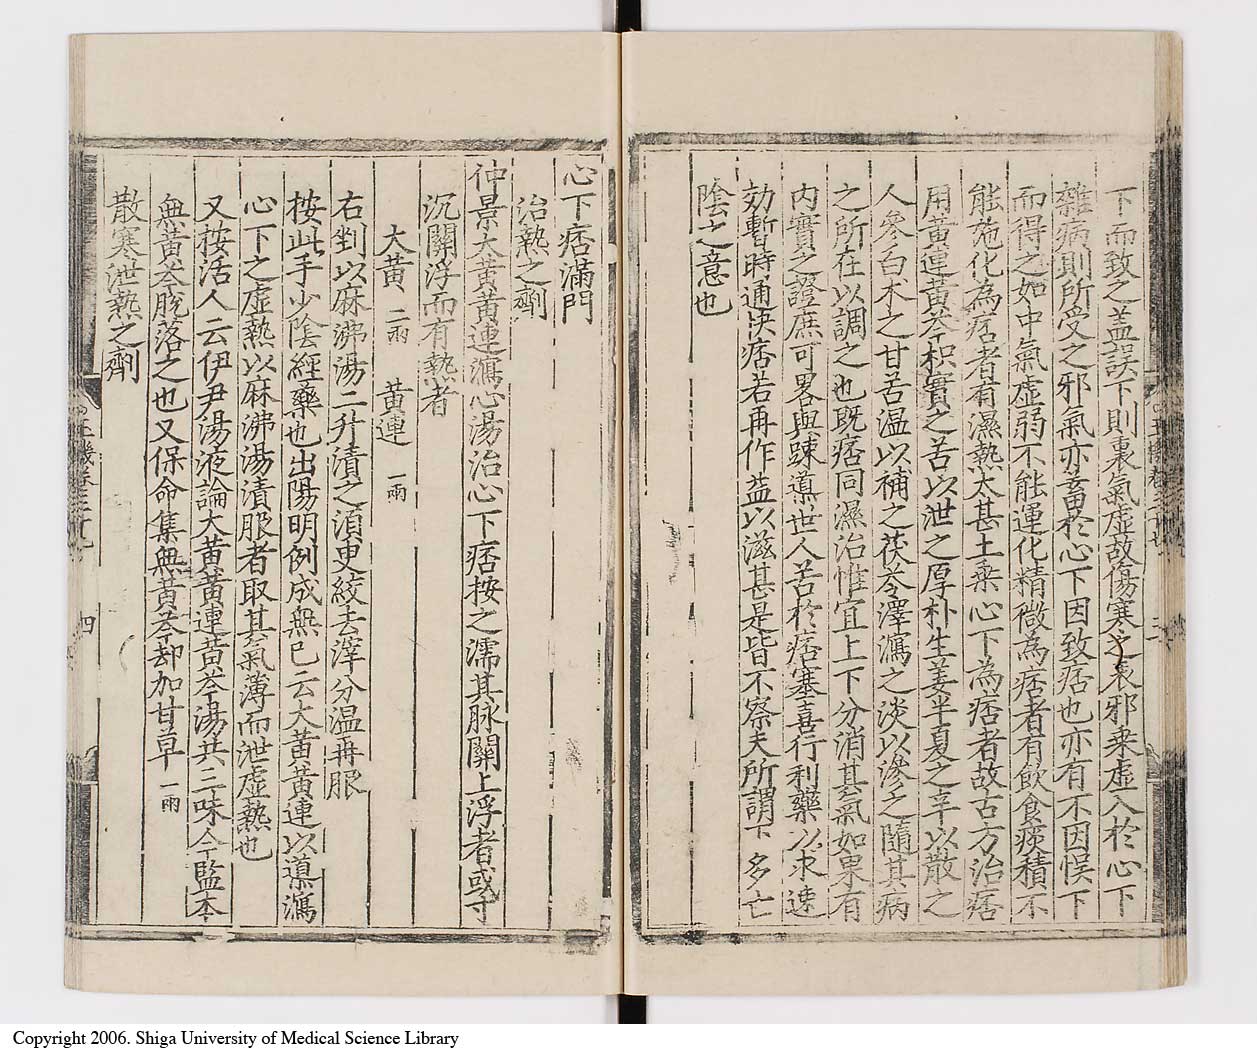 下而致之盖誤下則裏氣虛故傷寒之表邪乗虛入於心下
雜病則所受之邪氣亦蓄於心下因致痞也亦有不因悞下
而得之如中氣虛弱不能運化精微為痞者有飲食痰積不
能施化為痞者有濕熱太甚土乗心下為痞者故古方治痞
用黄連黄芩枳實之苦以泄之厚朴生姜半夏之辛以散之
人參白术之甘苦温以補之茯苓澤瀉之淡以滲之隨其病
之所在以調之也既痞同濕治惟宜上下分消其氣如果有
内實之證庶可畧與踈導世人苦於痞塞喜行利藥以求速
効暫時通快痞若再作益以滋甚是皆不察夫所謂下多亡
隂之意也
心下痞滿門
治熱之劑
仲景大黄黄連瀉心湯治心下痞按之濡其脉關上浮者或寸
沉關浮而有熱者
大黄 二兩 黄連 一兩
右剉以麻沸湯二升漬之須臾絞去滓分温再服
按此手少隂經藥也出陽明例成無已云大黄黄連以導瀉
心下之虛熱以麻沸湯漬服者取其氣薄而泄虛熱也
又按活人云伊尹湯液論大黄黄連黄芩湯共三味今監本
無黄芩脱落之也又保命集無黄芩却加甘草 一兩
散寒泄熱之劑
四